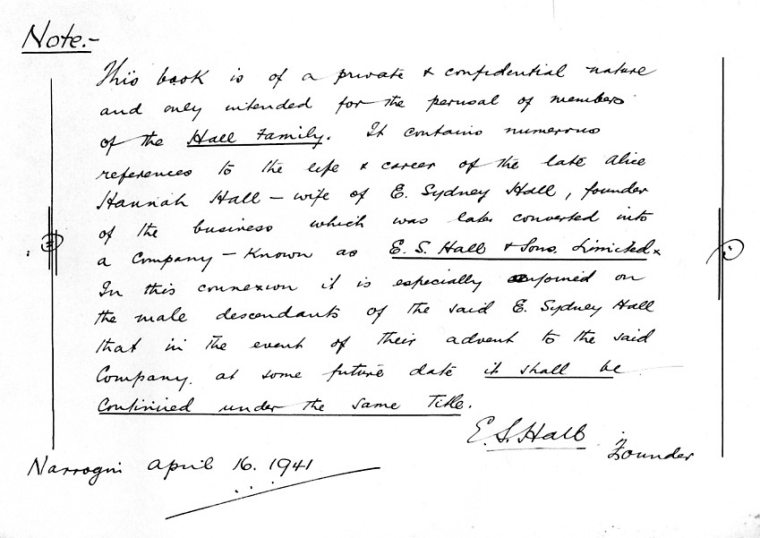 Note.-
This book is of a private & confidential nature
and only intended for the perusal of members
of the Hall Family. It contains numerous
references to the life & career of the late Alice
Hannah Hall - wife of E. Sydney Hall, founder
of the business which was later converted into
a Company - Known as E. S. Hall & Sons. Limited.
In this connexion it is especially enjoined on
the male descendants of the said E. Sydney Hall
that in the event of their advent to the said
Company, at some future date it shall be
Continued under the same Title.
E. S. Hall
Founder
Narrogin April 16. 1941